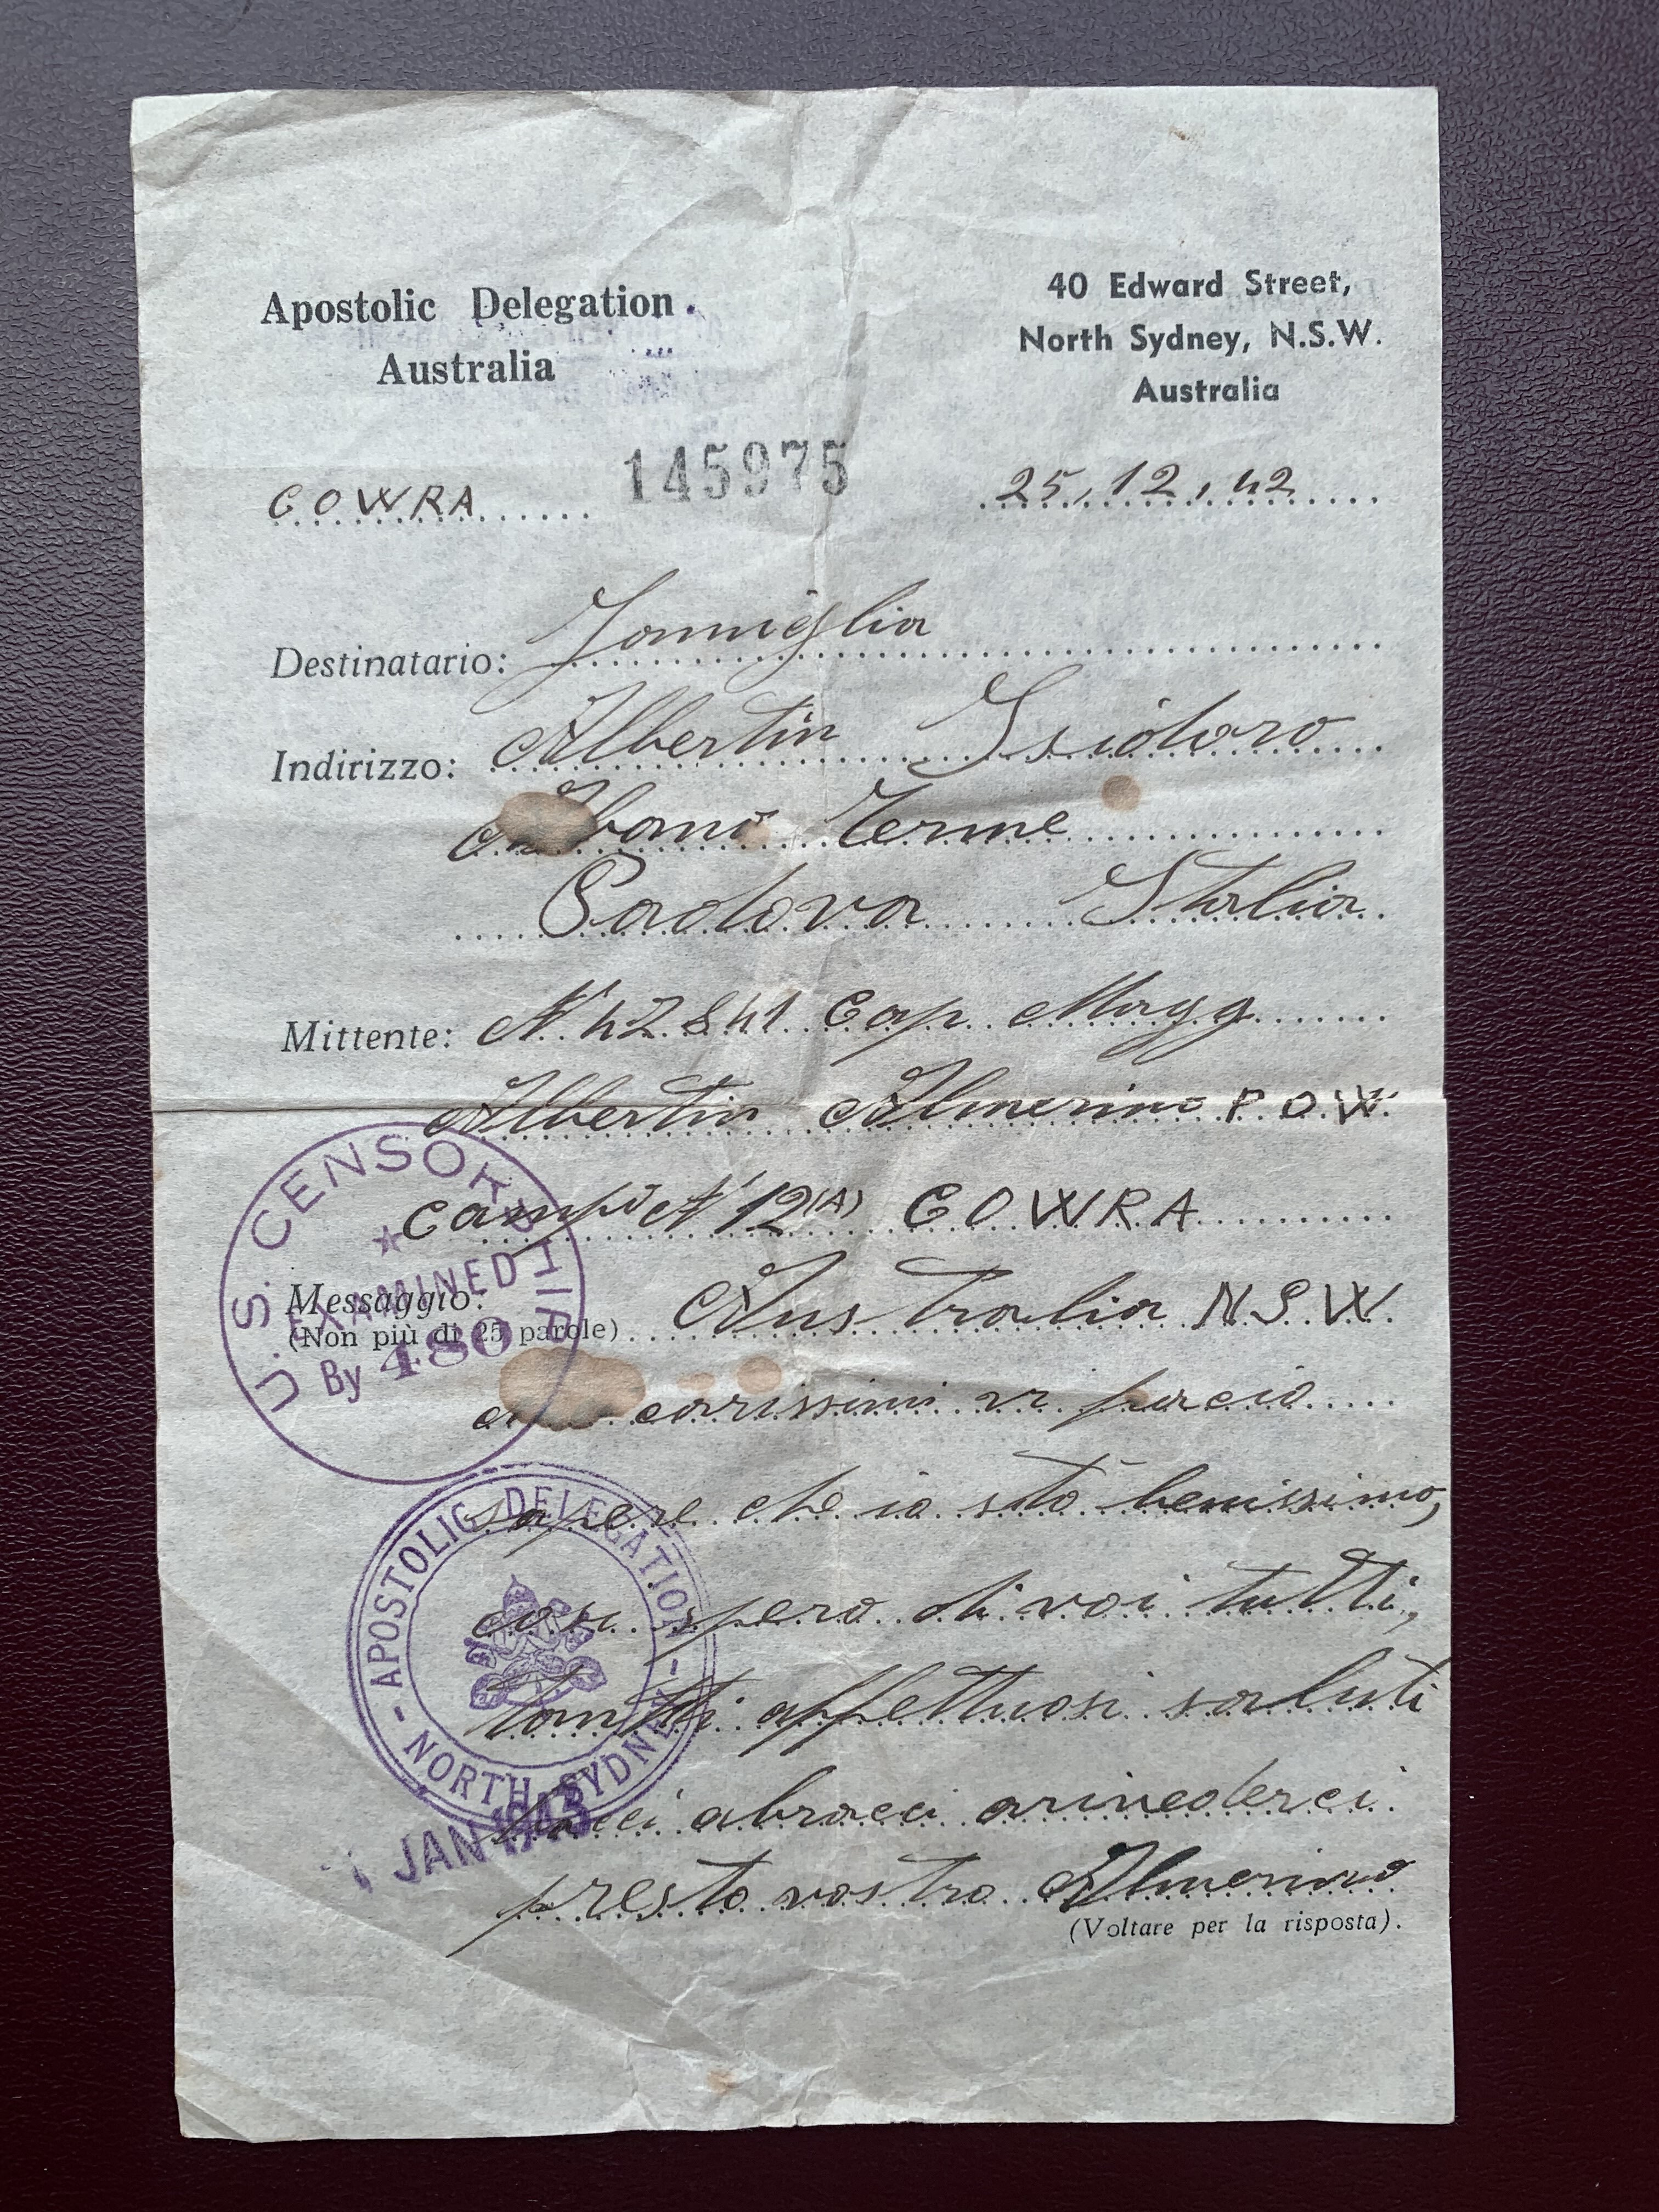 Apostolic Delegation
Australia
40 Edward Street,
North Sydney, N.S.W.
Australia
145975
COWRA
25.12.42
Destinatario: Famiglia
Indirizzo: Albertin Isidoro
Abano Terme
Padova Italia
Mittente: N° 42841 Cap. Magg
Albertin Almerino P.O.W.
Campo N° 12(A) COWRA
Messaggio:
(Non più di 25 parole) Australia N S W
carissimi vi facio
sapere che io stò benissimo,
cosi spero di voi tutti,
tantti affettuosi saluti
baci abracci arivederci
presto vostro Almerino
(Voltare per la risposta).
U.S. CENSORSHIP
EXAMINED
By 480
- APOSTOLIC DELEGATION - NORTH SYDNEY
JAN 1943